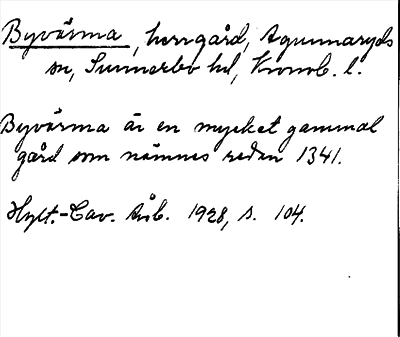 Byvärma, herrgård, Agunnaryds
sn, Sunnerbo hd, Kronob. l.
Byvärma är en mycket gammal
gård som nämnes redan 1341.
Hylt.-Cav. Årb. 1928, s. 104.